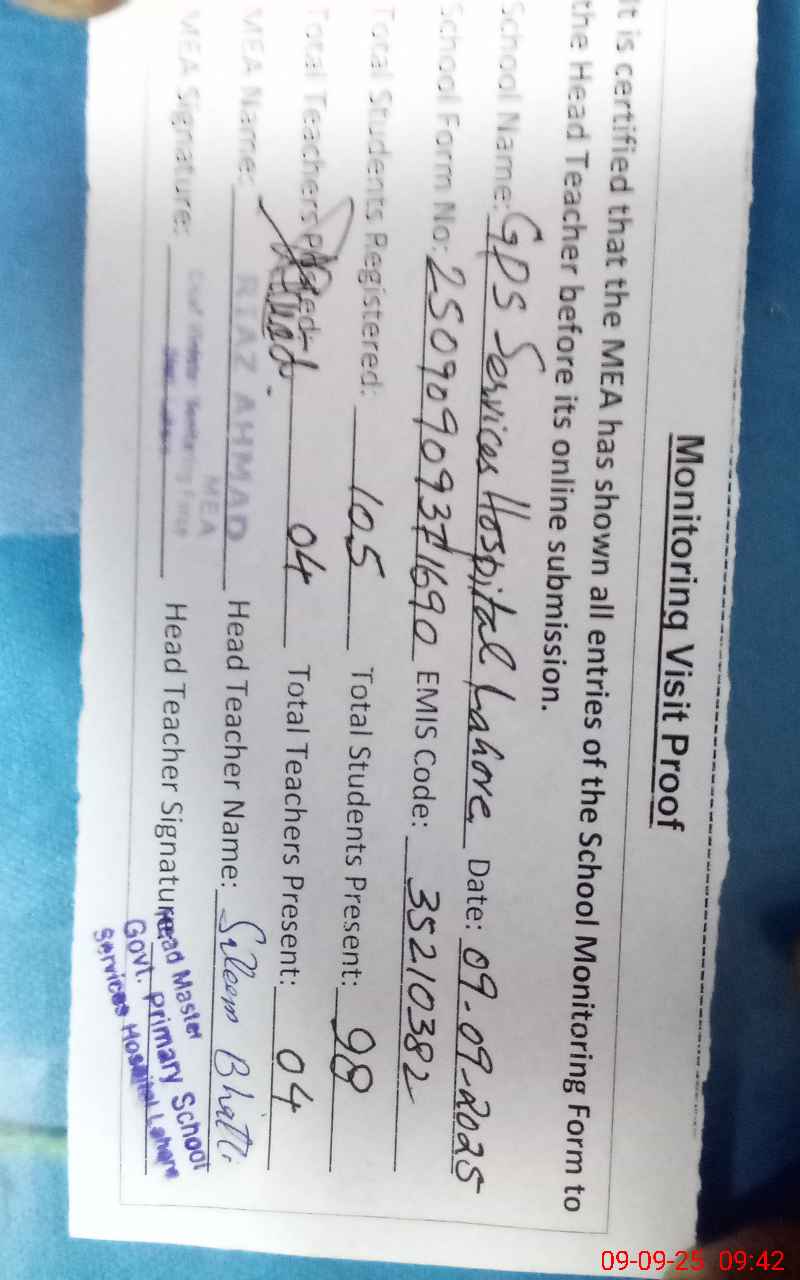 Monitoring Visit Proof
It is certified that the MEA has shown all entries of the School Monitoring Form to
the Head Teacher before its online submission.
School Name: GPS Services Hospital Lahore, Date: 09-09-2025
School Form No: EMIS Code: 35210382
Total Students Registered: 105 Total Students Present: 98
Total Teachers Posted: 04 Total Teachers Present: 04
MEA Name: RIAZ AHMAD Head Teacher Name: Saleem Bhatti
MEA
MEA Signature: Head Teacher Signature:
Chief Minister Monitoring Force
Head Master
Govt. Primary School
Services Hospital Lahore
09-09-25 09:42